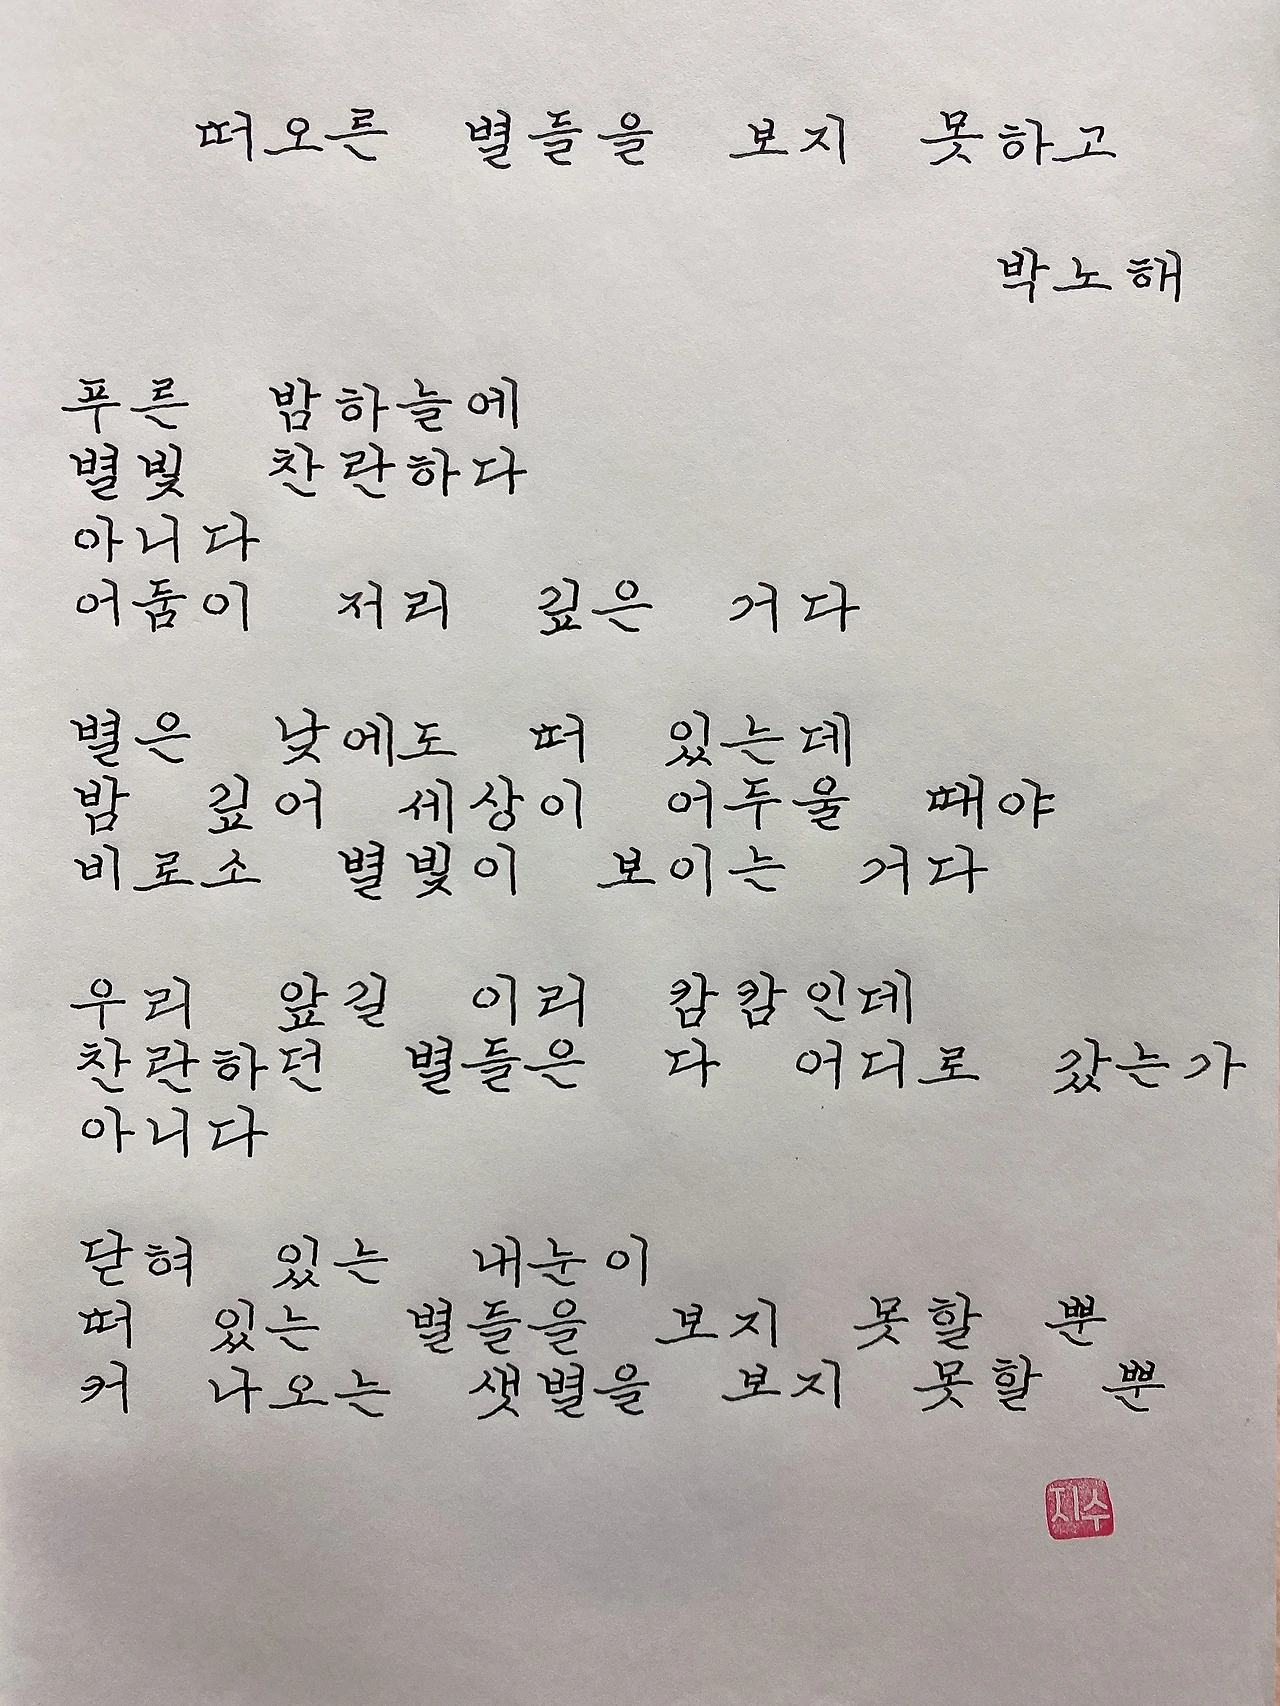 떠오른 별들을 보지 못하고
박노해
푸른 밤하늘에
별빛 찬란하다
아니다
어둠이 저리 깊은 거다
별은 낮에도 떠 있는데
밤 깊어 세상이 어두울 때야
비로소 별빛이 보이는 거다
우리 앞길 이리 캄캄인데
찬란하던 별들은 다 어디로 갔는가
아니다
닫혀 있는 내눈이
떠 있는 별들을 보지 못할 뿐
커 나오는 샛별을 보지 못할 뿐
지수